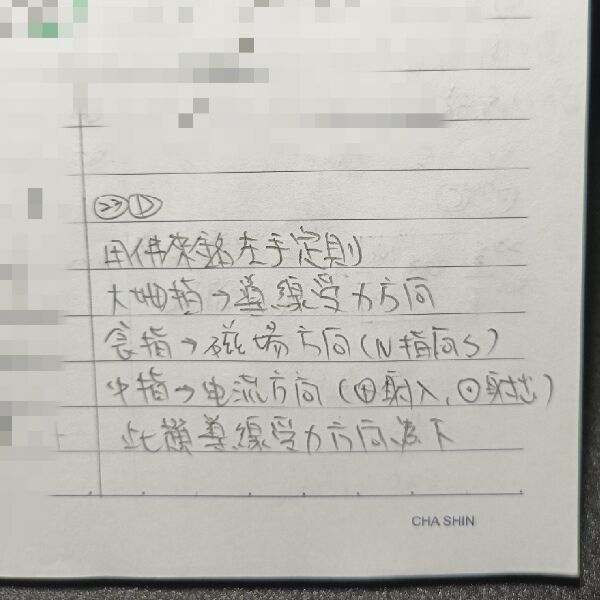 ≫ D
用佛來銘左手定則
大姆指→導線受力方向
食指→磁場方向(N指向S)
中指→電流方向(⊕射入,⊙射出)
此簡導線受力方向為下
CHA SHIN